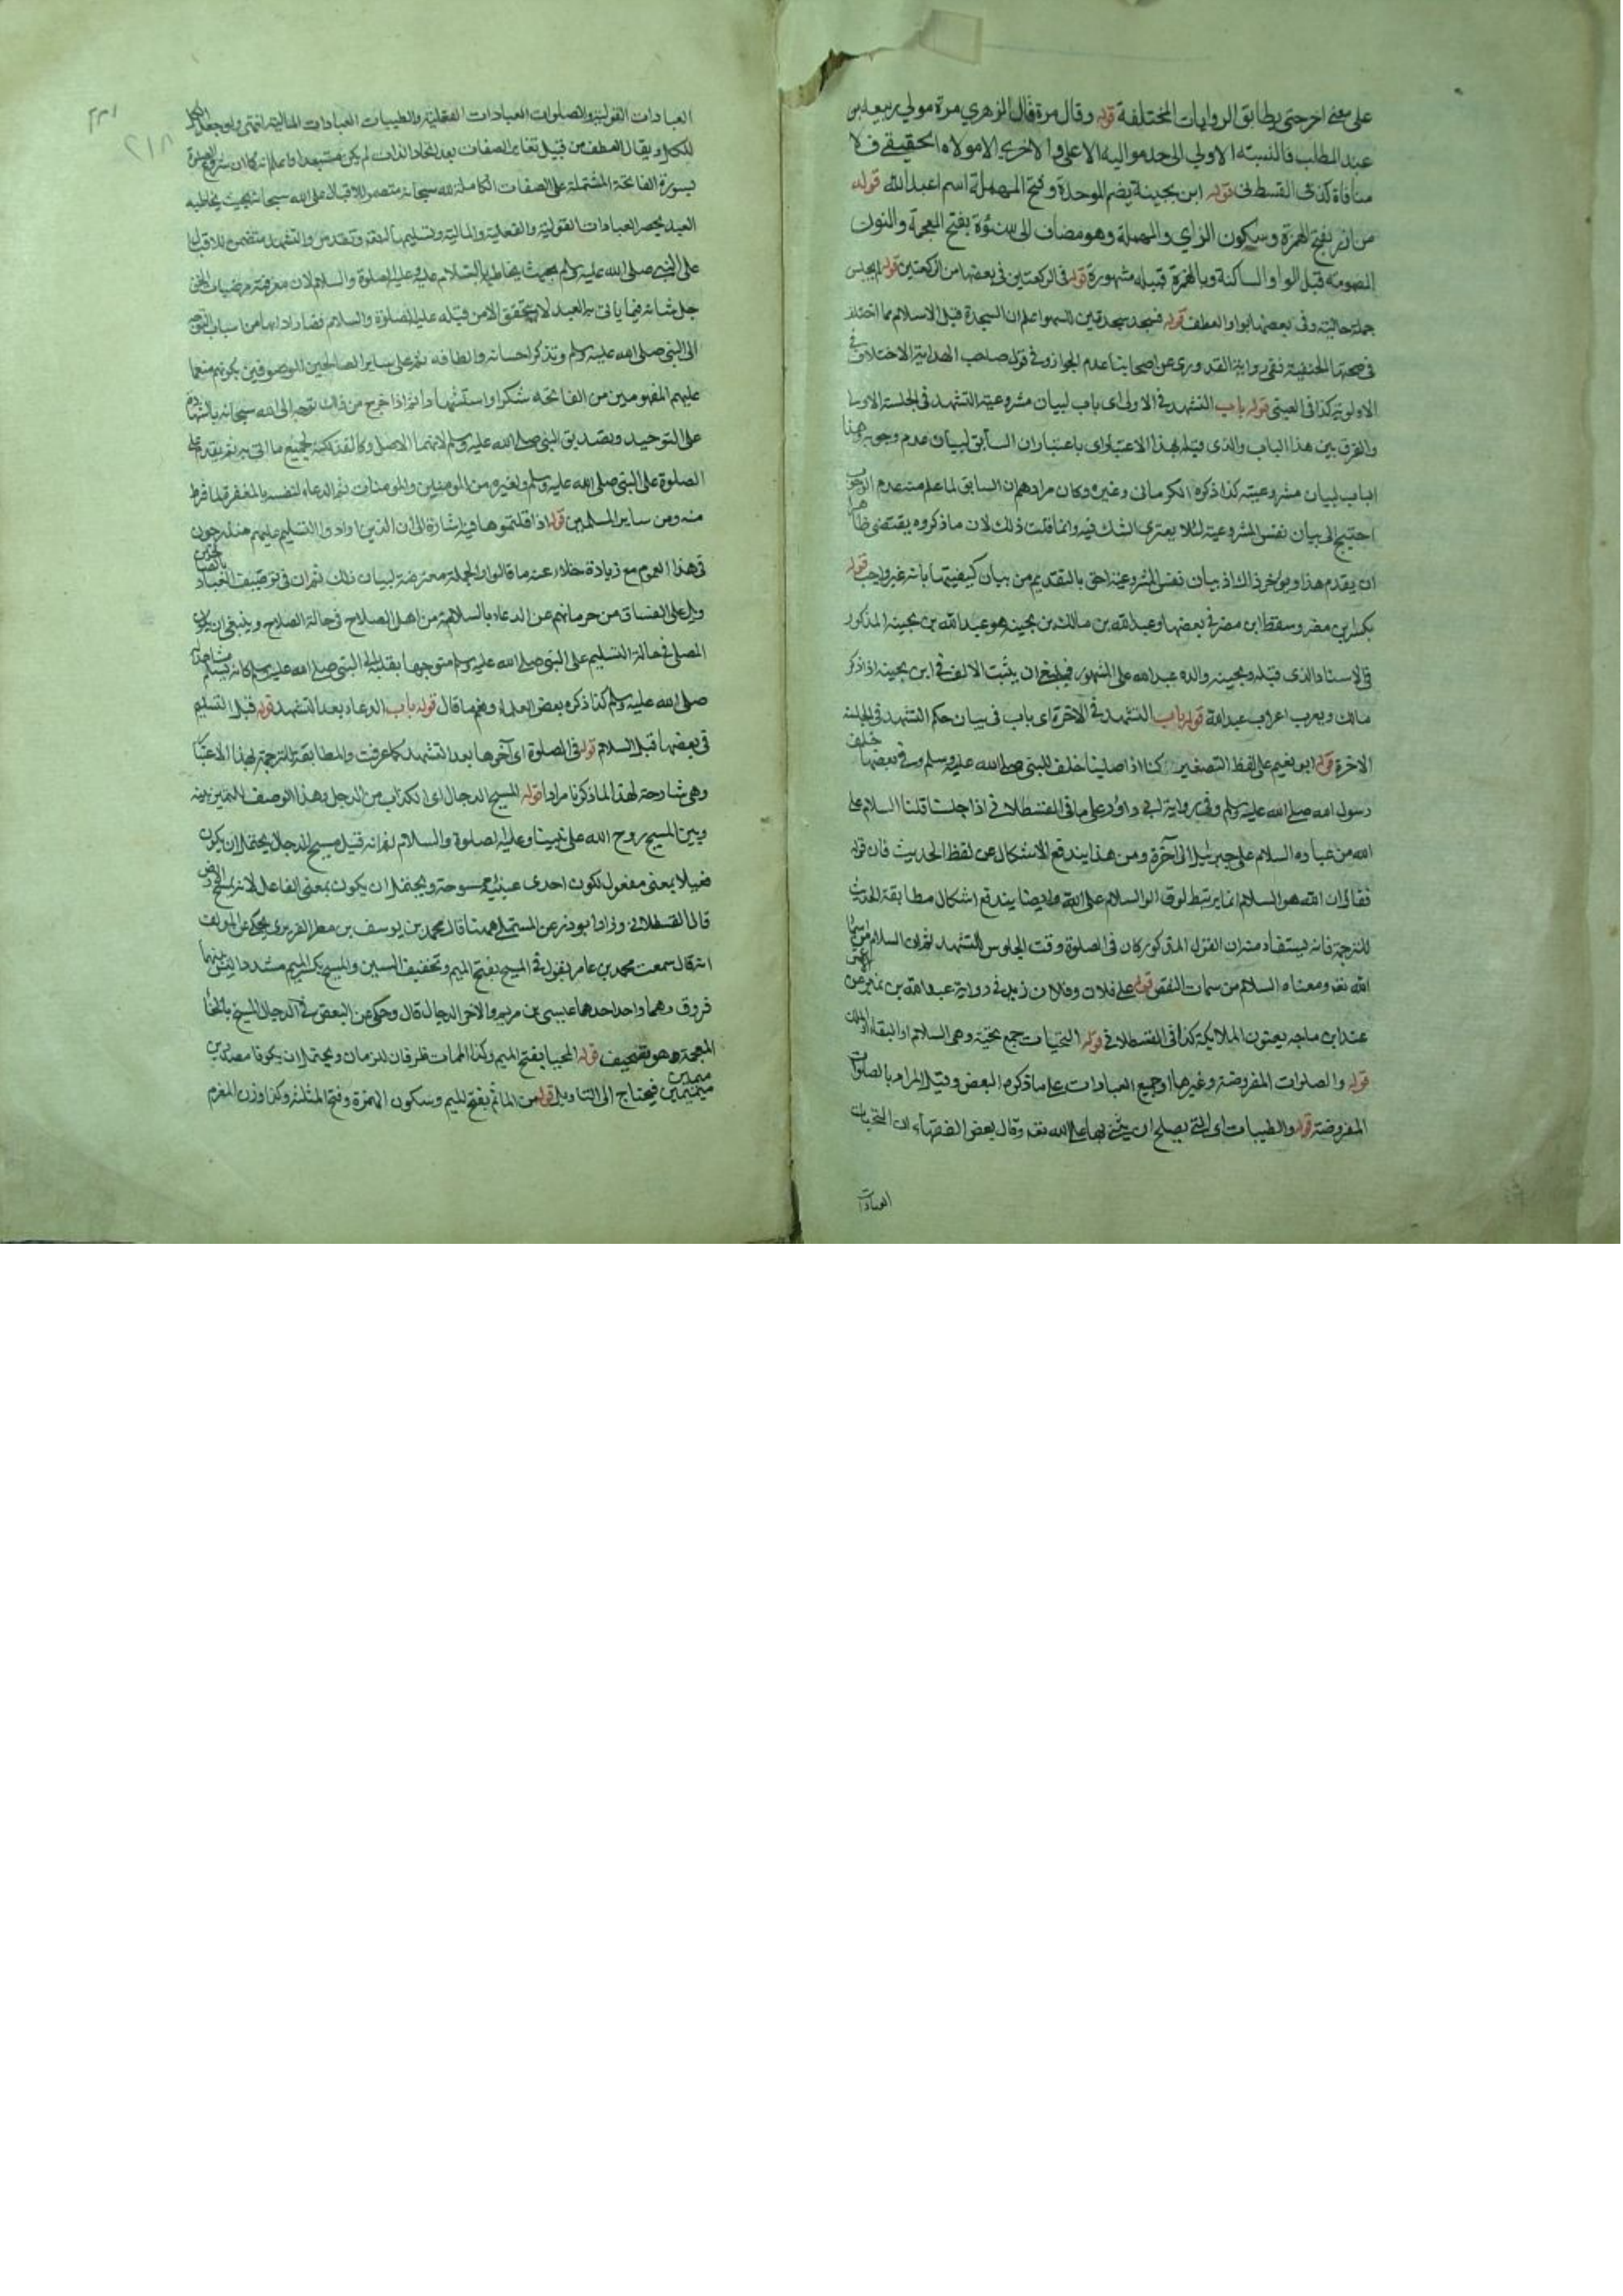 على معنى اخر حتى يطابق الروايات المختلفة قوله وقال مرة قال الزهري مرة مولى ربيعة بن
عبد المطلب فالنسبة الاولي الى جد مواليه الاعلى والاخرى الا مولاه الحقيقي فلا
منافاة كذا في القسطلاني قوله ابن بحينة بضم الموحدة وفتح المهملة اسم ام عبد الله قوله
من ازد بفتح الهمزة وسكون الزاي والمهملة وهو مضاف الى شنؤة بفتح المعجمة والنون
المضمومة قبل الواو الساكنة وبالهمزة قبيلة مشهورة قوله في الركعتين في بعضها من الركعتين قوله لم يجلس
جملة حالية وفي بعضها بواو العطف قوله فسجد سجدتين للسهو اعلم ان السجدة قبل الاسلام مما اختلف
في صحتها الحنفية ففي رواية القدوري عن اصحابنا عدم الجواز وفي قول صاحب الهداية الاختلاف في
الاولوية كذا في العيني قوله باب التشهد في الاولى اى باب لبيان مشروعية التشهد في الجلسة الاولى
والفرق بين هذا الباب والذي قبله بهذا الاعتبار اى باعتبار ان السابق لبيان عدم وجوبه وهذا
الباب لبيان مشروعيته كذا ذكره الكرماني وغيره وكان مرادهم ان السابق لما علم منه عدم الوجوب
احتيج الى بيان نفس المشروعية لئلا يعترى الشك فيه وانما قلت ذلك لان ما ذكروه يقتضى ظاهرا
ان يقدم هذا ويؤخر ذاك اذ بيان نفس المشروعية احق بالتقديم من بيان كيفيتها بانه غير واجب قوله
بكر ابن مضر وسقط ابن مضر في بعضها وعبد الله بن مالك بن بحينه هو عبد الله بن بحينه المذكور
في الاسناد الذى قبله وبحينه والده عبد الله على المشهور فينبغي ان يثبت الالف في ابن بحينه اذا ذكر
مالك ويعرب اعراب عبد الله قوله باب التشهد في الاخرة اى باب في بيان حكم التشهد في الجلسة
الاخرة قوله ابو نعيم على لفظ التصغير كنا اذا صلينا خلف النبي صلى الله عليه وسلم وفي بعضها خلف
رسول الله صلى الله عليه وسلم وفي رواية ابي داؤد على ما في القسطلاني اذا جلسنا قلنا السلام على
الله من عباده السلام على جبرئيل الى آخره ومن هذا يندفع الاشكال عن لفظ الحديث فان قوله
فقال ان الله هو السلام انما يرتبط لو قالوا السلام على الله وايضا يندفع اشكال مطابقة الحديث
للترجمة فانه يستفاد منه ان القول المذكور كان في الصلوة وقت الجلوس للتشهد ثم ان السلام من اسماء
الله تعه ومعناه السلام من سمات النقص قوله على فلان وفلان زيد في رواية عبد الله بن نمير عن الاعمش
عند ابن ماجه يعنون الملائيكة كذا في القسطلاني قوله التحيات جمع تحية وهى السلام او البقاء او الملك
قوله والصلوات المفروضة وغيرها او جميع العبادات على ما ذكره البعض وقيل المراد بالصلوات
المفروضة قوله والطيبات اى التي يصلح ان يثنى بها على الله تعه وقال بعض الفقهاء ان التحيات
العبادات
العبادات القولية والصلوات العبادات الفعلية والطيبات العبادات المالية انتهى ولو جعل الكل
للكل ويقال العطف من قبيل تغاير الصفات بعد اتحاد الذات لم يكن مستبعدا واعلم انه كما ان شروع الصلوة
بسورة الفاتحة المشتملة على الصفات الكاملة لله سبحانه متضمن للاقبال على الله سبحانه بحيث يخاطبه
العبد بحصر العبادات القولية والفعلية والمالية وتسليمها لله تعه وتقدس والتشهد متضمن للاقبال
على النبي صلى الله عليه وسلم بحيث يخاطبه بالسلام عليه وعليه الصلوة والسلام لان معرفته مرضيات الحق
جل شانه فيما ياتى به العبد لا يتحقق الا من قبله عليه الصلوة والسلام فصار اداءها من اسباب التوجه
الى النبي صلى الله عليه وسلم وتذكر احسانه والطافه ثم على ساير الصالحين الموصوفين بكونهم منعما
عليهم المفهومين من الفاتحة شكرا واستشهادا ثم اذا خرج من ذلك توجه الى الله سبحانه بالشهادة
على التوحيد وتصديق النبي صلى الله عليه وسلم لانهما الاصل وكالفذلكة لجميع ما اتى به ثم يقدم على
الصلوة على النبي صلى الله عليه وسلم ولغيره من المومنين والمومنات ثم الدعاء لنفسه بالمغفرة لما فرط
منه ومن ساير المسلمين قوله اذا قلتموها فيه اشارة الى ان الذين ارادوا التسليم عليهم مندرجون
في هذا العموم مع زيادة خلاء عنه ما قالوا والجملة معترضة لبيان ذلك ثم ان في توصيف العباد بالصالحين
ويل على الفساق من حرمانهم عن الدعاء بالسلامة من اهل الصلاح في حالة الصلاح وينبغي ان يكون
المصلى في حالة التسليم على النبي صلى الله عليه وسلم متوجها بقلبه الى النبي صلى الله عليه وسلم كانه يشاهده
صلى الله عليه وسلم كذا ذكره بعض العلماء ونعم ما قال قوله باب الدعاء بعد التشهد قوله قبل التسليم
في بعضها قبل السلام قوله في الصلوة اى آخرها بعد التشهد كما عرفت والمطابقة للترجمة بهذا الاعتبار
وهى شارحة لهذا لما ذكرنا مرادا قوله المسيح الدجال اى الكذاب من الدجل وهذا الوصف للتمييز بينه
وبين المسيح روح الله على نبينا وعليه الصلوة والسلام ثم انه قيل مسيح الدجال يحتمل ان يكون
فعيلا بمعنى مفعول لكون احدى عينيه ممسوحة ويحتمل ان يكون بمعنى الفاعل لانه يمسح الارض
قال القسطلاني وزاد ابوذر عن المستملي ههنا قال محمد بن يوسف بن مطر الفربرى يحكى عن المولف
انه قال سمعت محمد بن عامر يقول في المسيح بفتح الميم وتخفيف السين والمسيح بكسر الميم مشددا ليس بينهما
فروق وهما واحد احدهما عيسى بن مريم والاخر الدجال قال وحكى عن البعض في الدجال المسيخ بالخاء
المعجمة وهو تصحيف قوله المحيا بفتح الميم وكذا الممات ظرفان للزمان ويحتمل ان يكونا مصدرين
ميميين فيحتاج الى التاويل قوله من الماثم بفتح الميم وسكون الهمزة وفتح المثلثه وكذا وزن المغرم